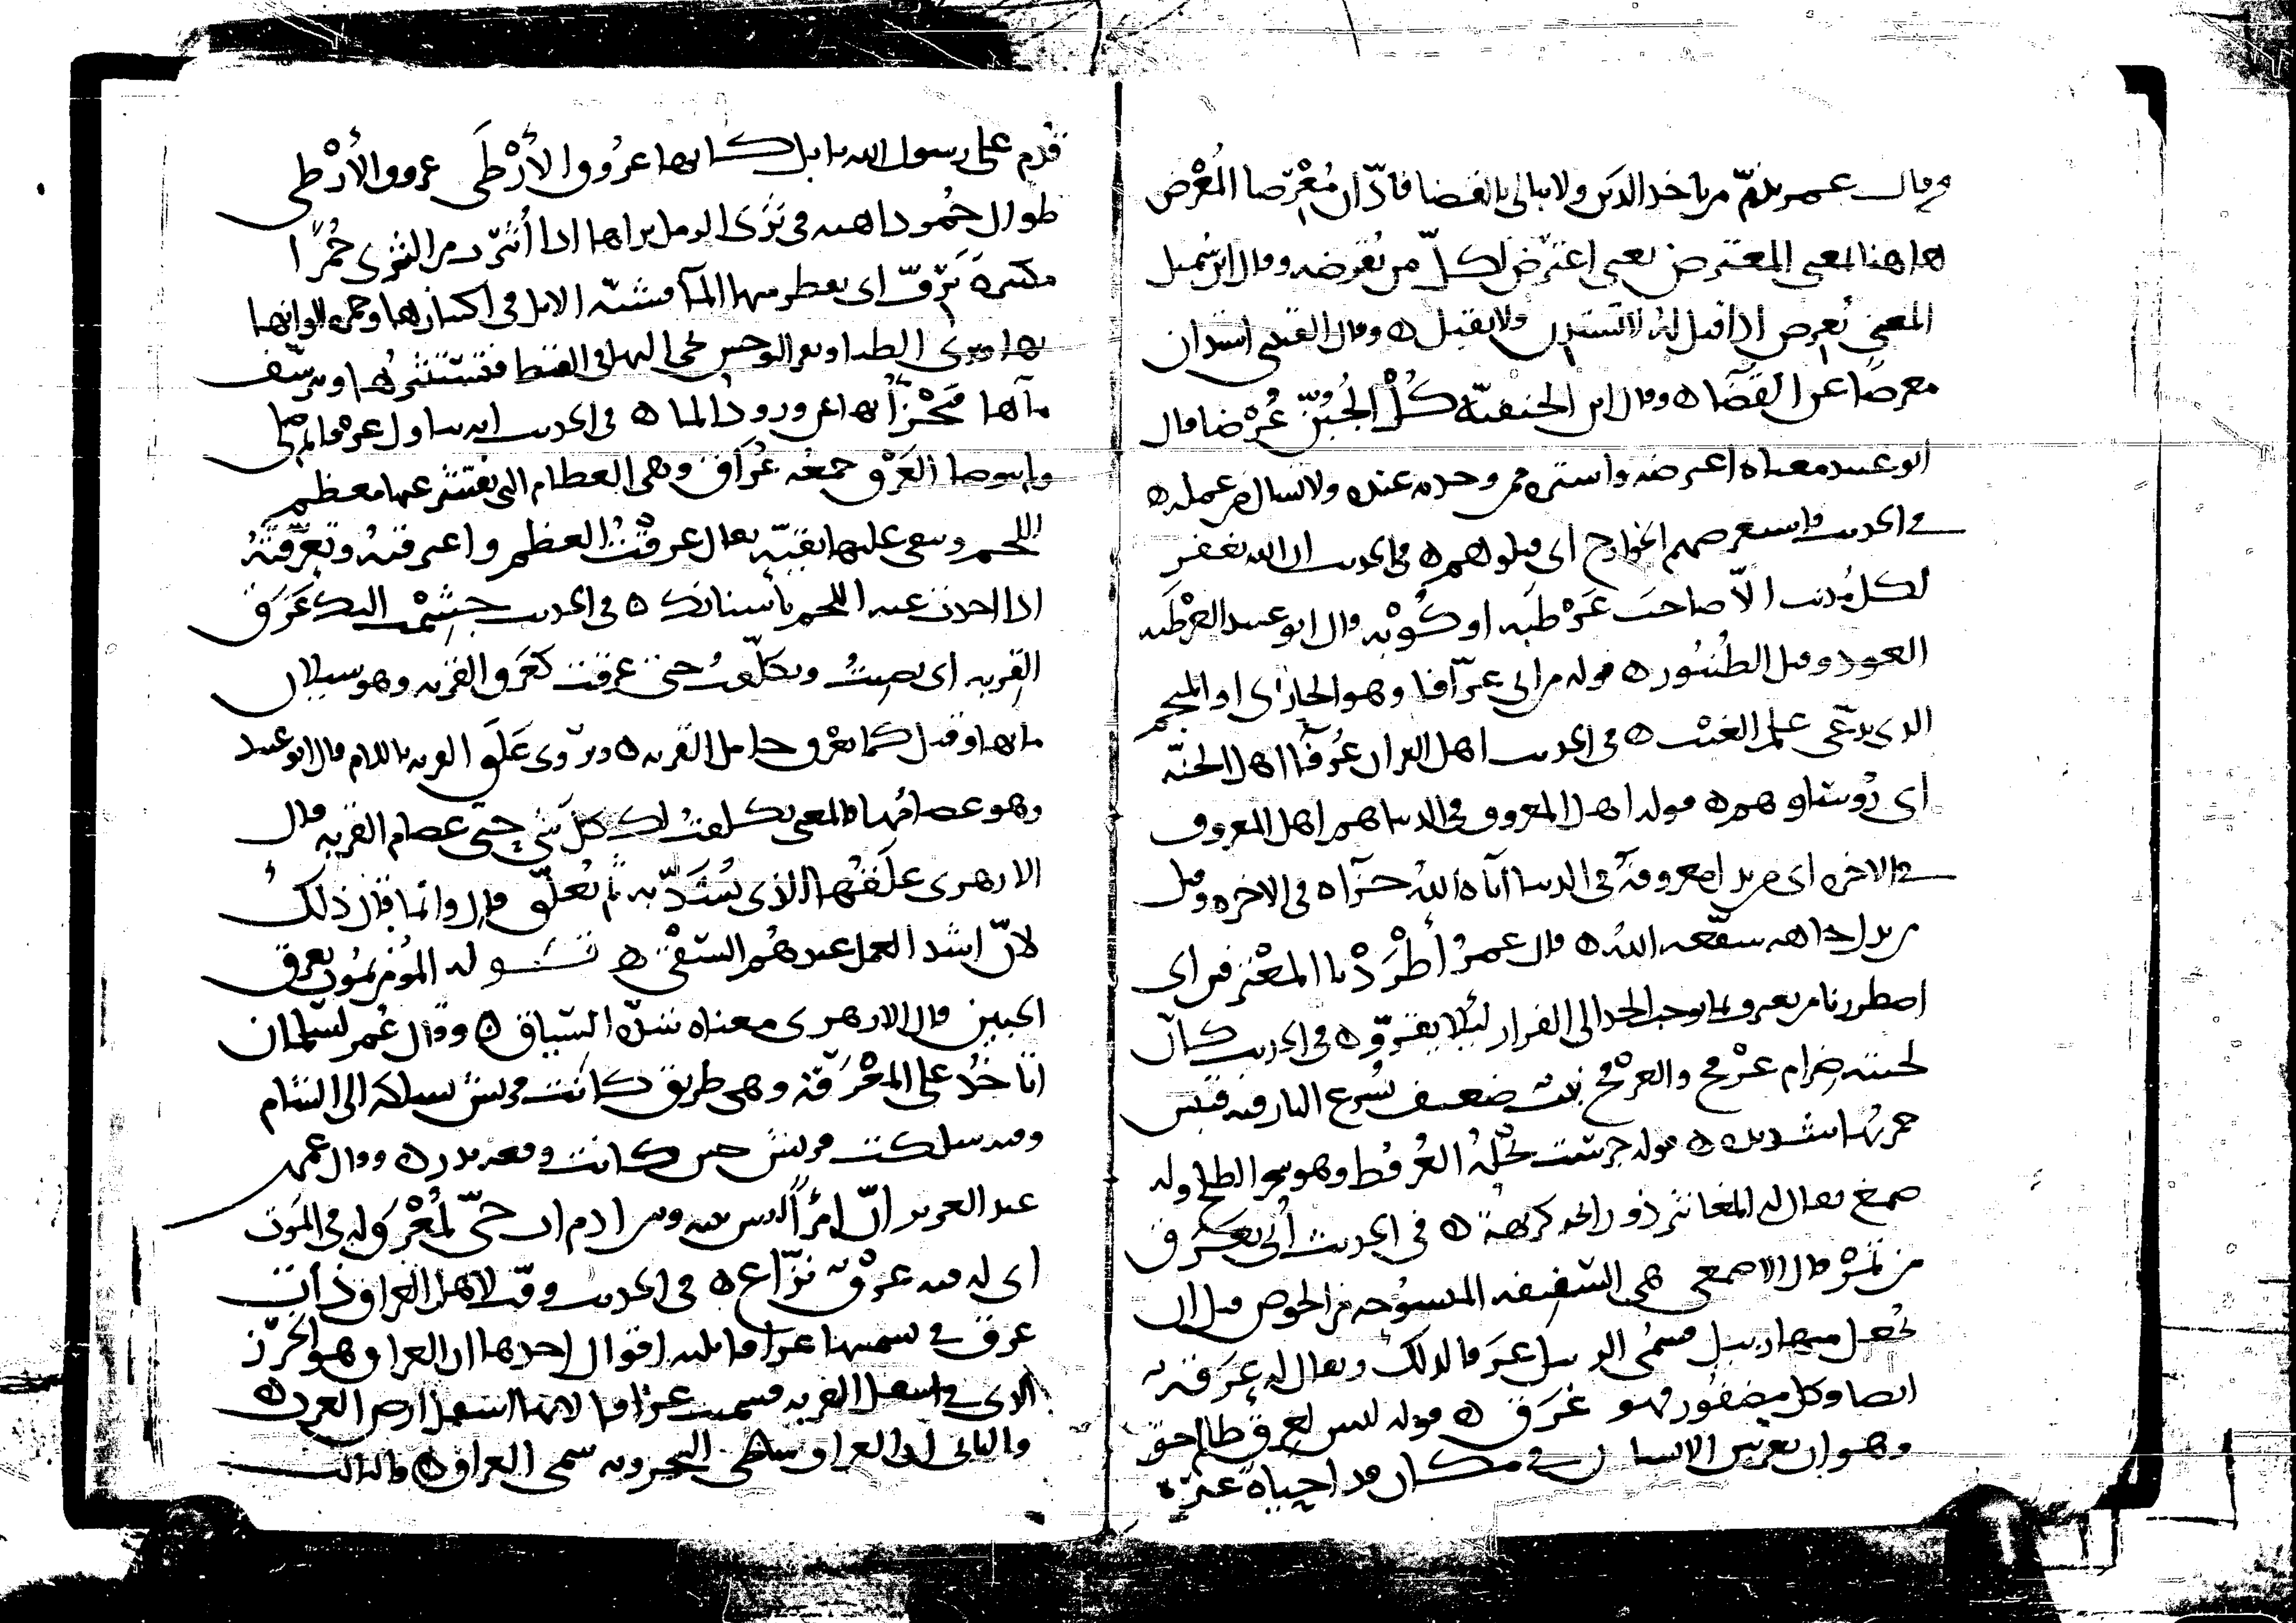 وقال عمر يذمّ من ياخد الدين ولا يبالى بالقضا فادّان مُعْرضا المُعْرض
هاهنا بمعنى المعترض يعنى اعترض لكلّ من يُقرضه وقال ابن شُميل
المعنى يُعرض اذا قيل له لا تستدن ولا يقبل ه وقال القتبى استدان
معرضًا عن القضا ه وقال ابن الحنفيّة كُل الجُبُنّ عُرْضا قال
ابو عبيد معناه اعترضه واشتره ممن وجدته عنده ولا تسال من عمله ه
فى الحديث فاستعرضهم الخوارج اى قتلوهم ه فى الحديث ان الله يغفر
لكل مُذنب الّا صاحب عَرْطبه او كُوْبه قال ابو عبيد العرطبه
العود وقيل الطُنبُور ه قوله من اتى عرّافا وهو الحازى او المنجم
الذى يدّعى علم الغيب ه فى الحديث اهل القران عُرفآ اهل الجنّه
اى رُوساوهم ه قوله اهل المعروف فى الدنيا هم اهل المعروف
فى الاخره اى من بذل معروفهُ فى الدنيا اتاه اللهُ جزآه فى الاخره وقيل
من بذل جاهه شفّعه اللهُ ه قال عمرُ أطْرَدْنا المعْترفين اى
اضطررنا من يعترف بما يوجب الحد الى الفرار لئلا يقرّ ه فى الحديث كانّ
لحيته ضرام عرْفج والعرْفج نبت ضعيف تُسرع النار فيه فتبين
حمرتُها شديده ه قوله جرست نحْلُهُ العُرفُط وهو شجر الطلح وله
صمغ يقال له المغاثير ذو رائحه كريهة ه فى الحديث أُتى بعَرَق
من تمْرٍ قال الاصمعى هى السّفيفه المنسوجه من الخوص قبل ان
تُجعل منها زبيل فسُمى الزبيل عَرَقا لذلك ويقال له عَرَقة
ايضا وكل مضفُور فهو عَرَق ه قوله ليس لعرق ظالم حق
وهو ان يغرس الانسان فى مكان قد احياهُ غيره
قُدم على رسول الله بابل كانها عرُوق الأرْطَى عروق الأرْطى
طوال حُمُر ذاهبه فى ثَرَى الرمل تراها اذا أُثيرت من الثرى حُمُرًا
مكتنزه تَرِفّ اى يقطر منها المآ فشبّه الابل فى اكتنازها وحمره الوانها
بها وترى الظبا وبقر الوحش تجى اليها فى القيظ فتستثيرُها وترشف
مآها فتجْزأ بها عن ورود الما ه فى الحديث انه تناول عرْقا ثم صلّى
ولم يتوضا العَرْق جمعه عُراق وهى العظام التى يقشر عنها معظم
اللحم ويبقى عليها بقيّه يقال عرقْتُ العظم واعترقتهُ وتعرّقتهُ
اذا اخدت عنه اللحم باسنانك ه فى الحديث جشِمْتُ اليك عَرَق
القربه اى نصبتُ وتكلّفت حتى عرقت كعَرَق القربه وهو سيلان
مايها وقيل كما يعْرق حامل القربه ه ويرْوى عَلَق القربه باللام قال ابو عبيد
وهو عصامُها فالمعنى تكلفتُ لك كلّ شى حتى عصام القربه قال
الازهرى علَقُها الذى تُشدّ به ثم تُعلّق قال وانما قال ذلك
لانّ اشد العمل عندهُم السقْى ه قوله المُومن يمُوت بعرق
الجبين قال الازهرى معناه شدّة السّياق ه وقال عُمر لسلمان
اتاخُذ على المعْرَقة وهى طريق كانت قريش تسلكه الى الشام
وفيه سلكت قريش حين كانت وقعه بدر ه وقال عمر بن
عبد العزيز انّ امرأً ليس بينه وبين ادم اب حىّ لمُعْرق له فى الموت
اى له فيه عرْق نزّاع ه فى الحديث وقّت لاهل العراق ذات
عرق فى تسميتها عراقا ثلثه اقوال احدها ان العراق هو الخَرز
الذى فى اسفل القربه فسميت عراقا لانها اسفل ارض العرب ه
والثانى ان العراق شاطى البحر وبه سمى العراق ه والثالث